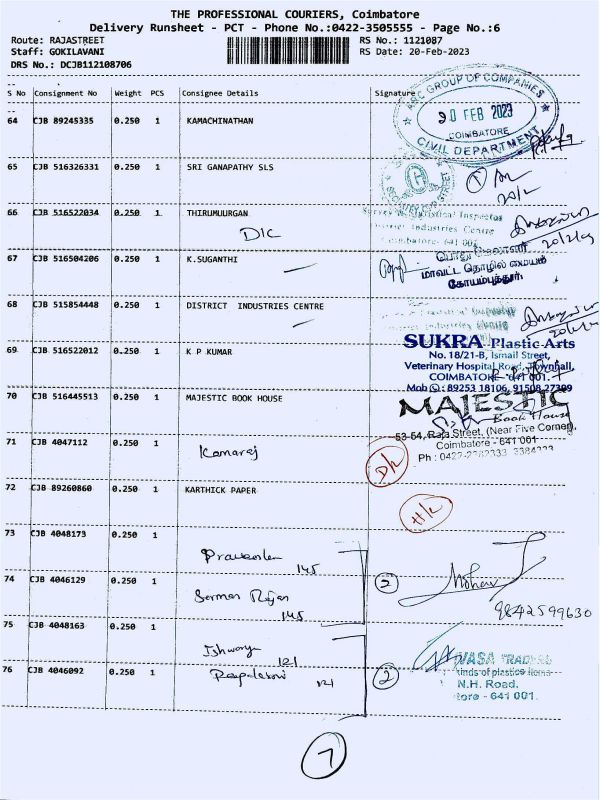 THE PROFESSIONAL COURIERS, Coimbatore
Delivery Runsheet - PCT - Phone No.:0422-3505555 - Page No.:6
Route: RAJASTREET RS No.: 1121087
Staff: GOKILAVANI RS Date: 20-Feb-2023
DRS No.: DCJB112108706
S No Consignment No Weight PCS Consignee Details Signature
ARC GROUP OF COMPANIES
20 FEB 2023
COIMBATORE
CIVIL DEPARTMENT
64 CJB 89245335 0.250 1 KAMACHINATHAN
65 CJB 516326331 0.250 1 SRI GANAPATHY SLS
20/2
66 CJB 516522034 0.250 1 THIRUMUURGAN
DIC
Inspector
District Industries Centre
Coimbatore- 641 001
20/2/23
67 CJB 516504206 0.250 1 K.SUGANTHI
பொது மேலாளர்
மாவட்ட தொழில் மையம்
கோயம்புத்தூர்
68 CJB 515854448 0.250 1 DISTRICT INDUSTRIES CENTRE
SUKRA Plastic Arts
No. 18/21-B, Ismail Street,
Veterinary Hospital Road, Townhall,
COIMBATORE - 641 001.
Mob : 89253 18106, 91508 27309
69 CJB 516522012 0.250 1 K P KUMAR
70 CJB 516445513 0.250 1 MAJESTIC BOOK HOUSE
MAJESTIC
Book House
53-54, Raja Street, (Near Five Corner),
Coimbatore - 641 001
Ph : 0422-2382333
71 CJB 4047112 0.250 1 Kamaraj
D/L
72 CJB 89260860 0.250 1 KARTHICK PAPER
H/L
73 CJB 4048173 0.250 1
145
74 CJB 4046129 0.250 1
145
2 Mohan
9842599630
75 CJB 4048163 0.250 1 Ishwarya
121
76 CJB 4046092 0.250 1
121
2
VASA TRADERS
kinds of plastics items
N.H. Road.
tore - 641 001.
7